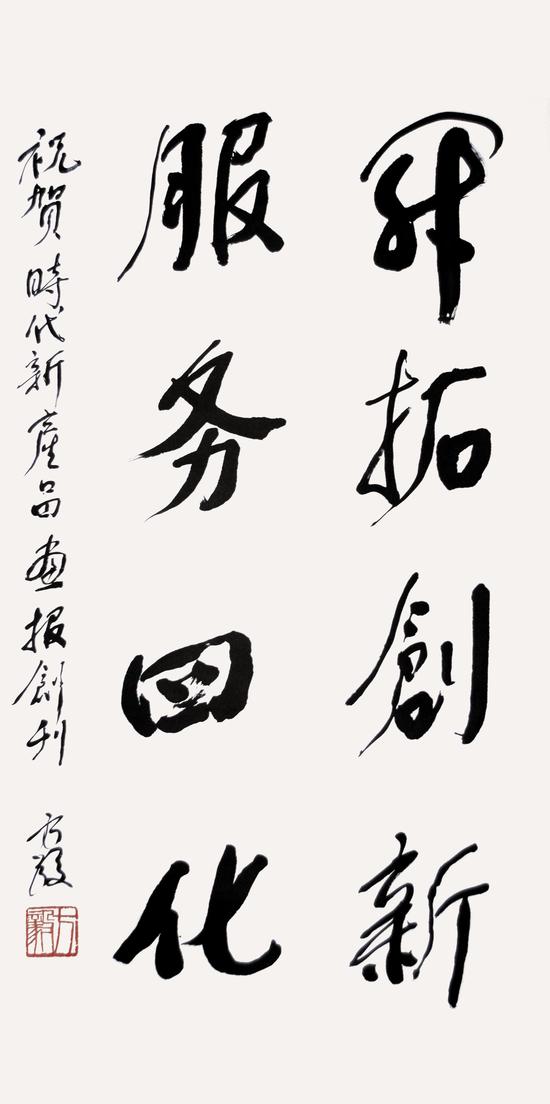 開拓創新
服务四化
祝賀時代新產品畫报創刊
方毅
方毅